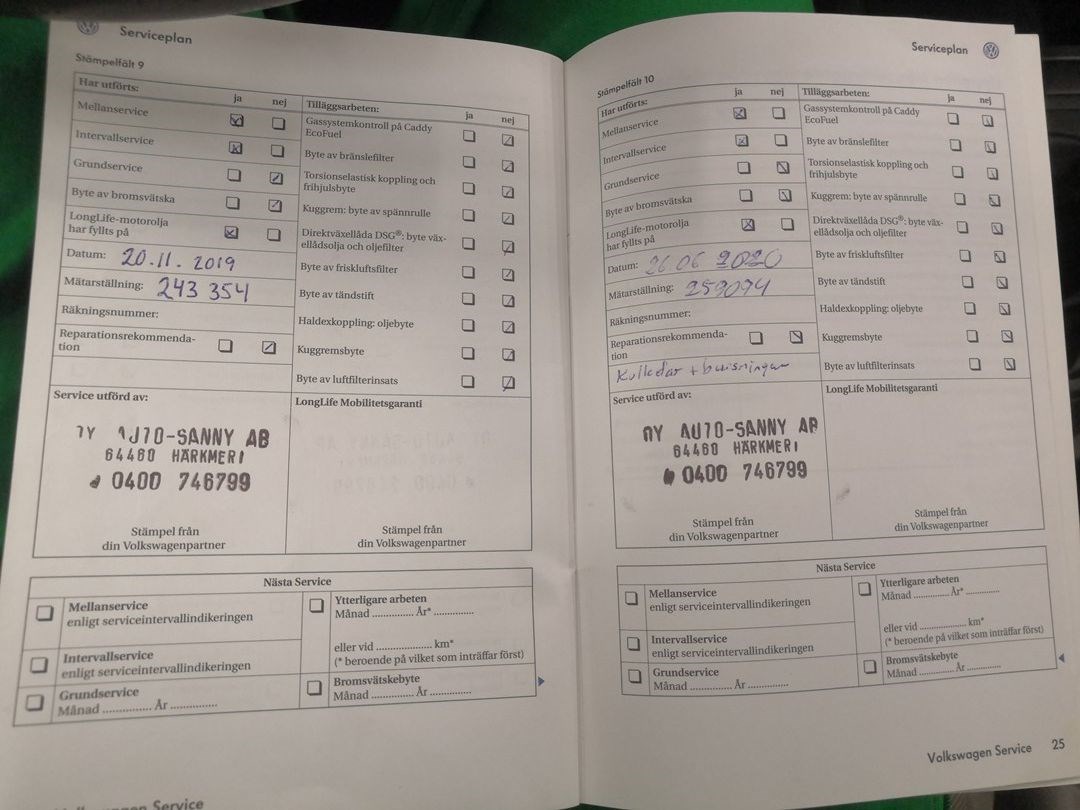 Serviceplan
Stämpelfält 9
Har utförts:
ja
nej
Mellanservice
Intervallservice
Grundservice
Byte av bromsvätska
LongLife-motorolja
har fyllts på
Datum: 20.11.2019
Mätarställning: 243 354
Räkningsnummer:
Reparationsrekommenda-
tion
Tilläggsarbeten:
ja
nej
Gassystemkontroll på Caddy
EcoFuel
Byte av bränslefilter
Torsionselastisk koppling och
frihjulsbyte
Kuggrem: byte av spännrulle
Direktväxellåda DSG®: byte väx-
ellådsolja och oljefilter
Byte av friskluftsfilter
Byte av tändstift
Haldexkoppling: oljebyte
Kuggremsbyte
Byte av luftfilterinsats
Service utförd av:
AUTO-SANNY AB
64460 HÄRKMERI
0400 746799
Stämpel från
din Volkswagenpartner
LongLife Mobilitetsgaranti
Stämpel från
din Volkswagenpartner
Nästa Service
Mellanservice
enligt serviceintervallindikeringen
Intervallservice
enligt serviceintervallindikeringen
Grundservice
Månad ............. År .............
Ytterligare arbeten
Månad ............. År* .............
eller vid ..................... km*
(* beroende på vilket som inträffar först)
Bromsvätskebyte
Månad ............. År .............
Serviceplan
Stämpelfält 10
Har utförts:
ja
nej
Mellanservice
Intervallservice
Grundservice
Byte av bromsvätska
LongLife-motorolja
har fyllts på
Datum: 26 06 2020
Mätarställning: 259094
Räkningsnummer:
Reparationsrekommenda-
tion
Tilläggsarbeten:
ja
nej
Gassystemkontroll på Caddy
EcoFuel
Byte av bränslefilter
Torsionselastisk koppling och
frihjulsbyte
Kuggrem: byte av spännrulle
Direktväxellåda DSG®: byte väx-
ellådsolja och oljefilter
Byte av friskluftsfilter
Byte av tändstift
Haldexkoppling: oljebyte
Kuggremsbyte
Byte av luftfilterinsats
Service utförd av:
OY AUTO-SANNY AB
64460 HÄRKMERI
0400 746799
Stämpel från
din Volkswagenpartner
LongLife Mobilitetsgaranti
Stämpel från
din Volkswagenpartner
Nästa Service
Mellanservice
enligt serviceintervallindikeringen
Intervallservice
enligt serviceintervallindikeringen
Grundservice
Månad ............. År .............
Ytterligare arbeten
Månad ............. År* .............
eller vid ..................... km*
(* beroende på vilket som inträffar först)
Bromsvätskebyte
Månad ............. År .............
Volkswagen Service 25
Service